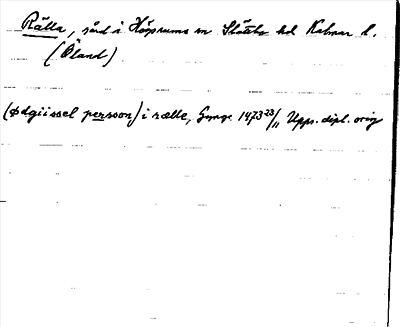 Rälla, gård i Högsrums sn Slättbo hd Kalmar l.
(Öland)
(ødgiissel persson) i rælle, Gynge 1473 23/11 Upps. dipl. orig